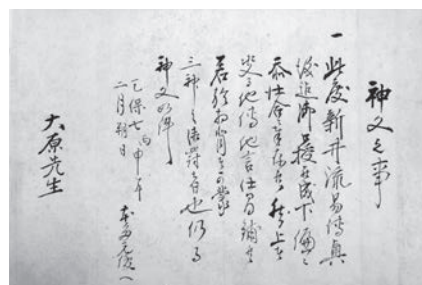 神文之事
一此度新井流易傳真
御授被成下偏ニ
忝仕合奉存候然上者
他傳他言仕間鋪候
若於相背者可蒙
三神之御罰者也仍而
神文如件
天保七丙申年
二月朔日
大原先生